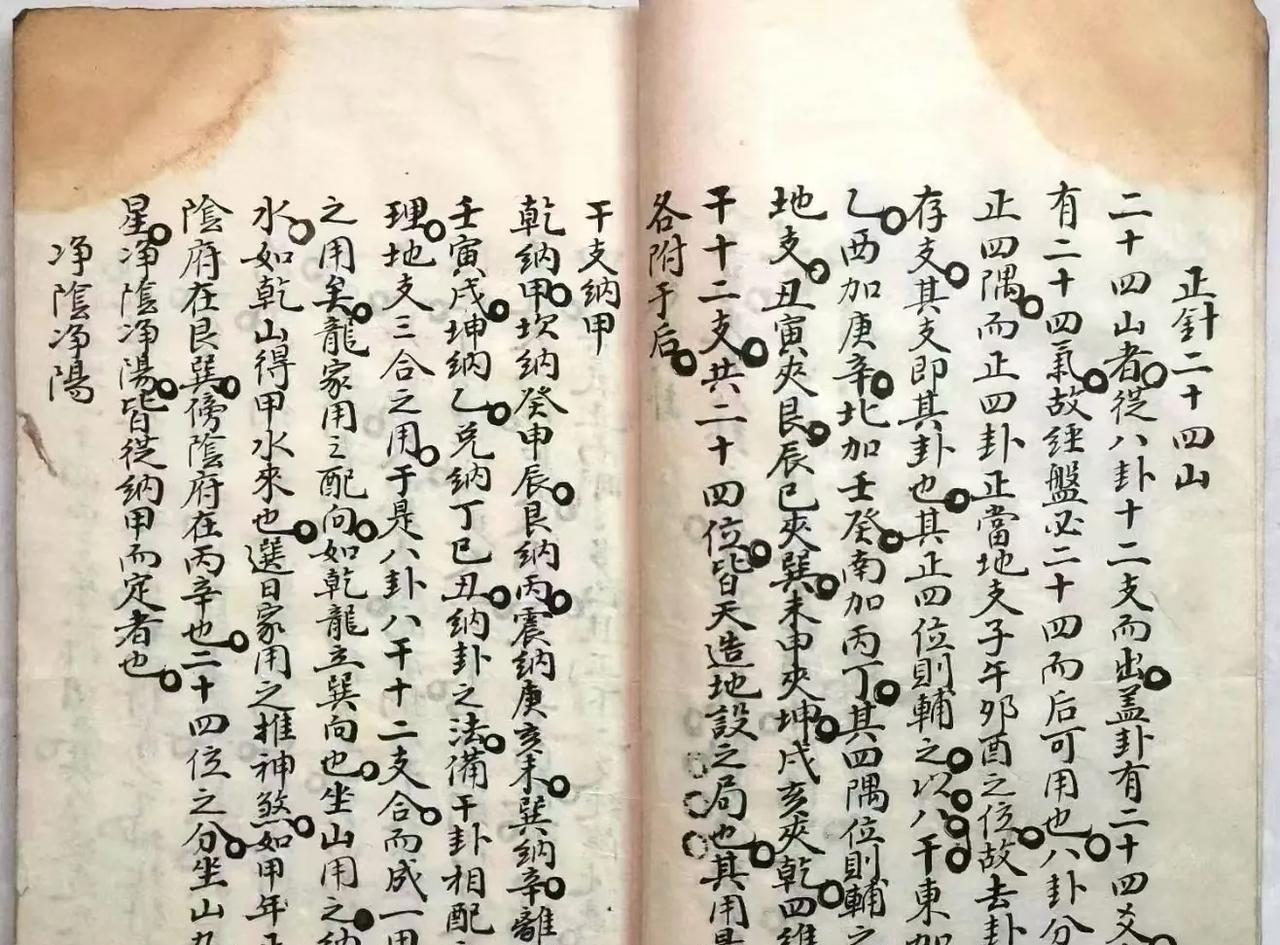 正針二十四山
二十四山者從八卦十二支而出盖卦有二十四爻
有二十四氣故經盤必二十四而后可用也八卦分
正四隅而正四卦正當地支子午夘酉之位故去卦
存支其支即其卦也其正四位則輔之以八干東加
乙西加庚辛北加壬癸南加丙丁其四隅位則輔之
地支丑寅夾艮辰巳夾巽未申夾坤戌亥夾乾四維
干十二支共二十四位皆天造地設之局也其用是
各附于后
干支納甲
乾納甲坎納癸申辰艮納丙震納庚亥未巽納辛離
壬寅戌坤納乙兑納丁巳丑納卦之法備干卦相配
理地支三合之用于是八卦八干十二支合而成一
之用矣龍家用之配向如乾龍立巽向也坐山用之納
水如乾山得甲水來也選日家用之推神煞如甲年正
陰府在艮巽傍陰府在丙辛也二十四位之分坐山九
星净陰净陽皆從納甲而定者也
净陰净陽